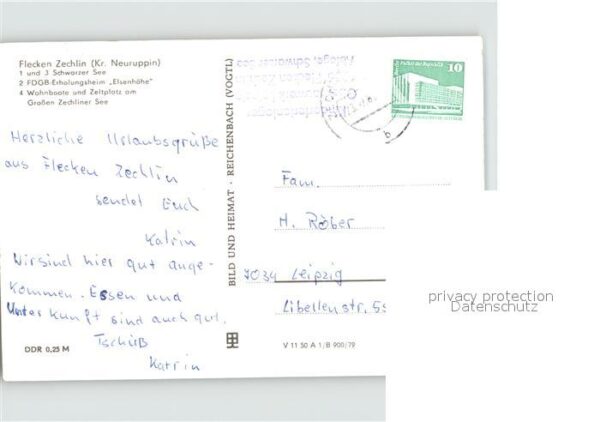 Flecken Zechlin (Kr. Neuruppin)
1 und 3 Schwarzer See
2 FDGB-Erholungsheim „Elsenhöhe"
4 Wohnboote und Zeltplatz am
Großen Zechliner See
Herzliche Urlaubsgrüße
aus Flecken Zechlin
sendet Euch
Katrin
Wir sind hier gut ange-
kommen. Essen und
Unterkunft sind auch gut.
Tschüß
Katrin
DDR 0,25 M
BILD UND HEIMAT · REICHENBACH (VOGTL)
Ablage, Schwarzer See
10
b
Fam.
H. Röber
7034 Leipzig
Libellenstr. 55
V 11 50 A 1/B 900/79
privacy protection
Datenschutz